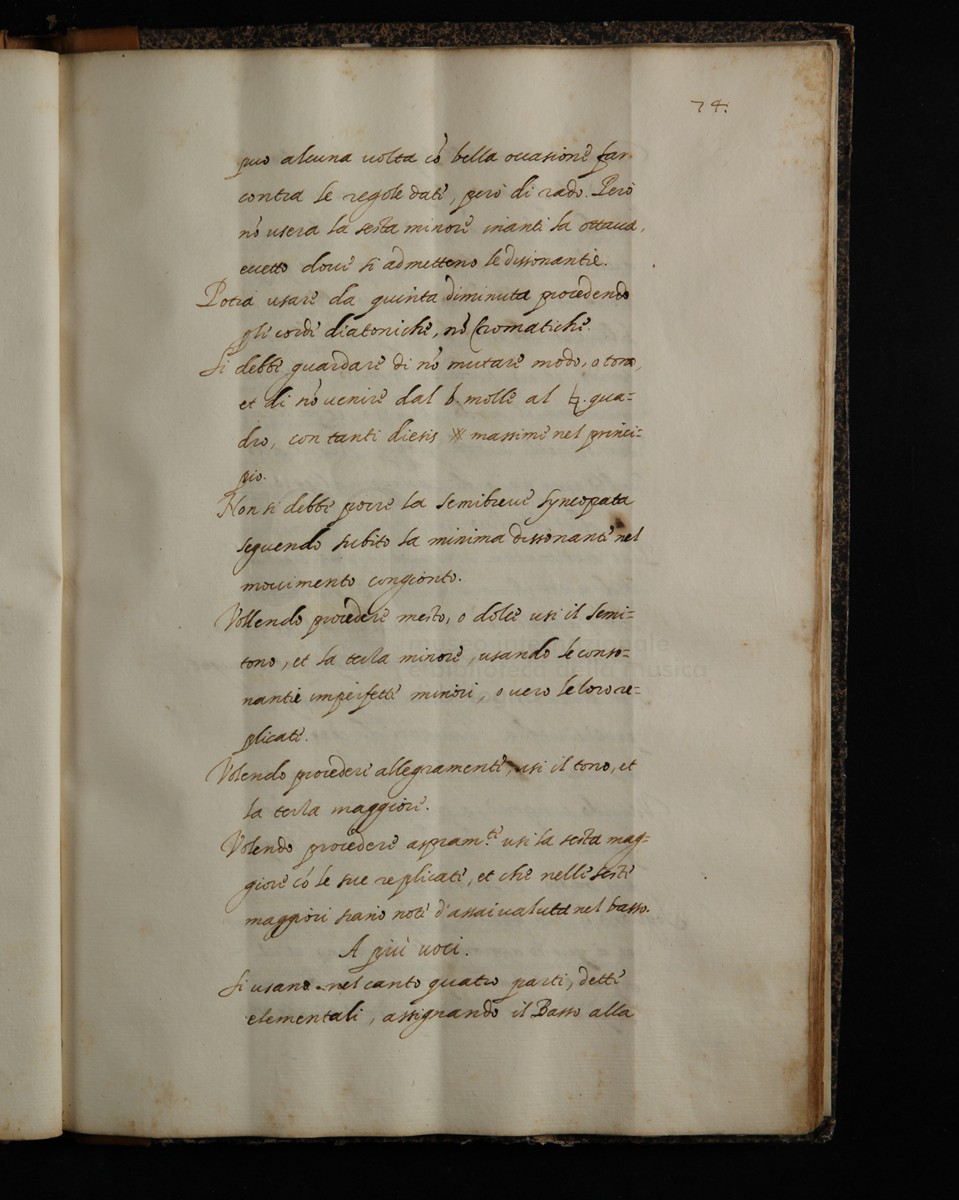 74.
può alcuna volta cō bella occasione far
contra le regole date, però di rado. Però
nō usera la sesta minore inanti la ottaua,
eccetto doue si admetteno le dissonantie.
Potra usare la quinta diminuta procedendo
p̱ le corde diatoniche, nō Cromatiche.
Si debbe guardare di nō mutare modo, o tono,
et di nō uenire dal b. molle al ♮. qua=
dro, con tanti diesis 𝄪 massime nel princi=
pio.
Non si debbe porre la semibreue syncopata
seguendo subito la minima dissonante nel
mouimento congionto.
Vollendo procedere mesto, o dolce usi il semi=
tono, et la terza minore, usando le conso=
nantie imperfette minori, o uero le loro re=
plicate.
Volendo procedere allegramente, usi il tono, et
la terza maggiore.
Volendo procedere aspram.te usi la sesta mag=
giore cō le sue replicate, et che nelle seste
maggiori siano note d'assai ualuta nel basso.
A più uoci.
Si usano nel canto quatro parti, dette
elementali, assignando il Basso alla